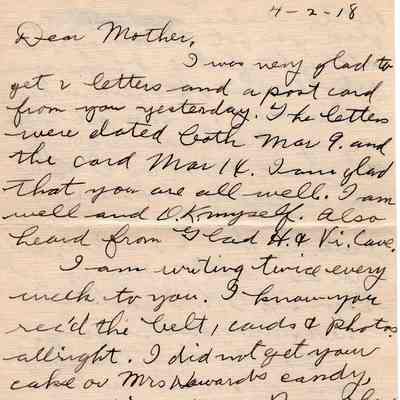 4-2-18
Dear Mother,
I was very glad to
get 2 letters and a post card
from you yesterday. The letters
were dated both Mar 9. and
the card Mar 14. I am glad
that you are all well. I am
well and O.K myself. Also
heard from Glad H. & Vi. Cave.
I am writing twice every
week to you. I know you
rec'd the belt, cards & photos
allright. I did not get your
cake or Mrs Howards candy,